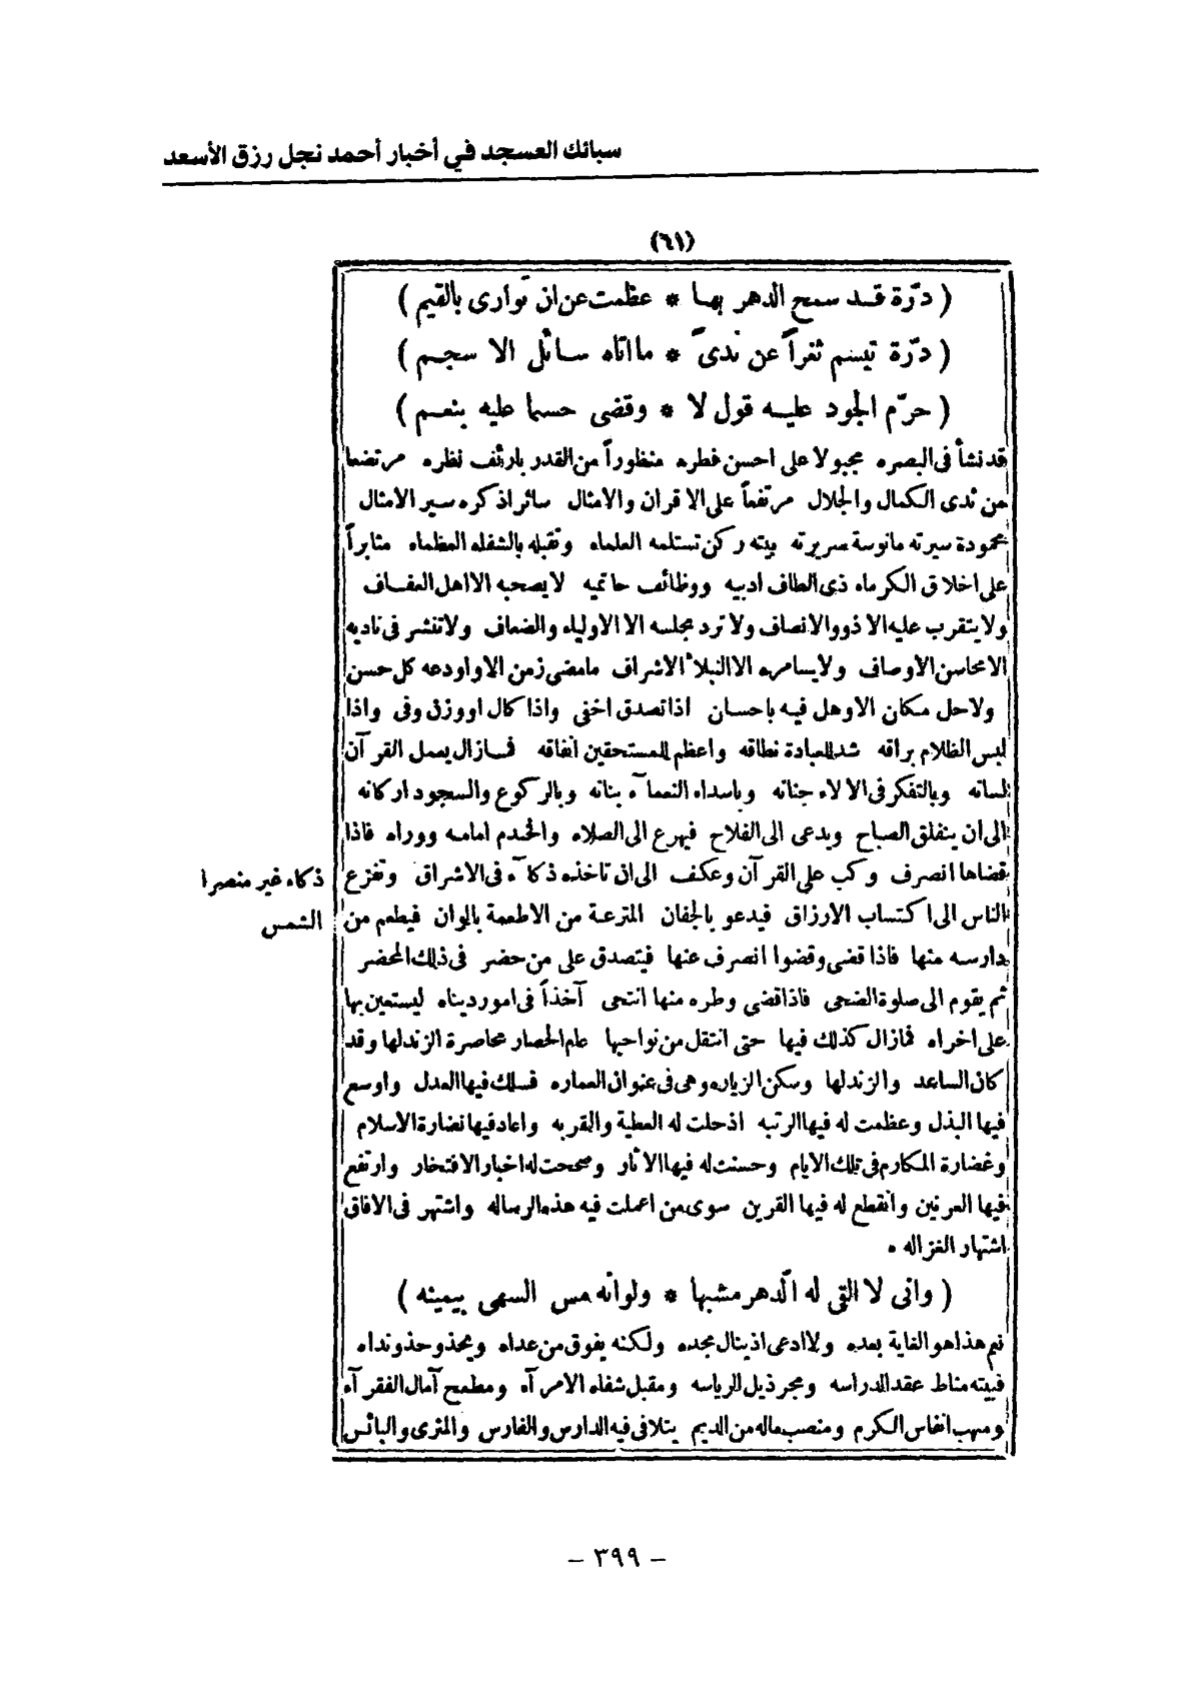 سبائك العسجد في أخبار أحمد نجل رزق الأسعد
(٦١)
( درّة قد سمح الدهر بها * عظمت عن ان توارى بالقيم )
( درّة تبسم ثغراً عن ندىً * ما اتاه سائل الا سجم )
( حرّم الجود عليه قول لا * وقضى حسما عليه بنعم )
قد نشأ فى البصره مجبولا على احسن فطره منظوراً من القدر بارئف نظره مرتضعا
من ثدى الكمال والجلال مرتفعاً على الاقران والامثال سائر اذكره سير الامثال
محمودة سيرته مانوسة سريرته بيته ركن تستلمه العلماء وتقبله بالشفله العظماء مثابراً
على اخلاق الكرماء ذى الطاف ادبيه ووظائف حاتميه لا يصحبه الا اهل العفاف
ولا يتقرب عليه الا ذوو الانصاف ولا ترد مجلسه الا الاولياء والضعاف ولا تنشر فى ناديه
الا محاسن الاوصاف ولا يسامره الا النبلاء الاشراف ما مضى زمن الا واودعه كل حسن
ولا حل مكان الا وهل فيه باحسان اذا تصدق اخفى واذا كال او وزن وفى واذا
لبس الظلام براقه شد للعبادة نطاقه واعظم للمستحقين انفاقه فما زال يعمل القرآن
لسانه وبالتفكر فى الالاء جنانه وباسداء النعمآء بنانه وبالركوع والسجود اركانه
الى ان ينفلق الصباح ويدعى الى الفلاح فيهرع الى الصلاه والخدم امامه ووراه فاذا
قضاها انصرف وكب على القرآن وعكف الى ان تاخذه ذكآء فى الاشراق وتفزع
ذكاء غير منصرا
الشمس
الناس الى اكتساب الارزاق فيدعو بالجفان المترعة من الاطعمة بالوان فيطعم من
دارسه منها فاذا قضى وقضوا انصرف عنها فيتصدق على من حضر فى ذلك المحضر
ثم يقوم الى صلوة الضحى فاذا قضى وطره منها انتحى آخذاً فى امور ديناه ليستعين بها
على اخراه فما زال كذلك فيها حتى انتقل من نواحيها عام الحصار محاصرة الزند لها وقد
كان الساعد والزند لها وسكن الزياره وهى فى عنوان العماره فسلك فيها العدل واوسع
فيها البذل وعظمت له فيها الرتبه اذ حلت له العطية والقربه واعاد فيها نضارة الاسلام
وغضارة المكارم فى تلك الايام وحسنت له فيها الاثار وصححت له اخبار الافتخار وارتفع
فيها العرنين وانقطع له فيها القرين سوى من اعملت فيه هذه الرساله واشتهر فى الافاق
اشتهار الغزاله .
( وانى لا القى له الّدهر مشبها * ولو انه مس السهى بيمينه )
نعم هذا هو الغاية بعده ولا ادعى اذ ينال مجده ولكنه يفوق من عداه ويحذو حذو نداه
فبيته مناط عقد الدراسه ومجر ذيل الرياسه ومقبل شفاه الامرآء ومطمح آمال الفقرآء
ومهب انفاس الكرم ومنصب ماله من الديم يتلافى فيه الدارس والفارس والمثرى والبائس
- ٣٩٩ -